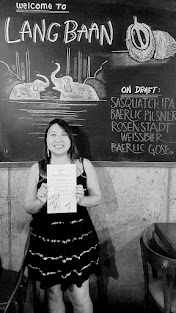 WELCOME TO
LANG BAAN
ON DRAFT:
SASQUATCH IPA
BAERLIC PILSNER
ROSENSTADT
WEISSBIER
BAERLIC GOSE